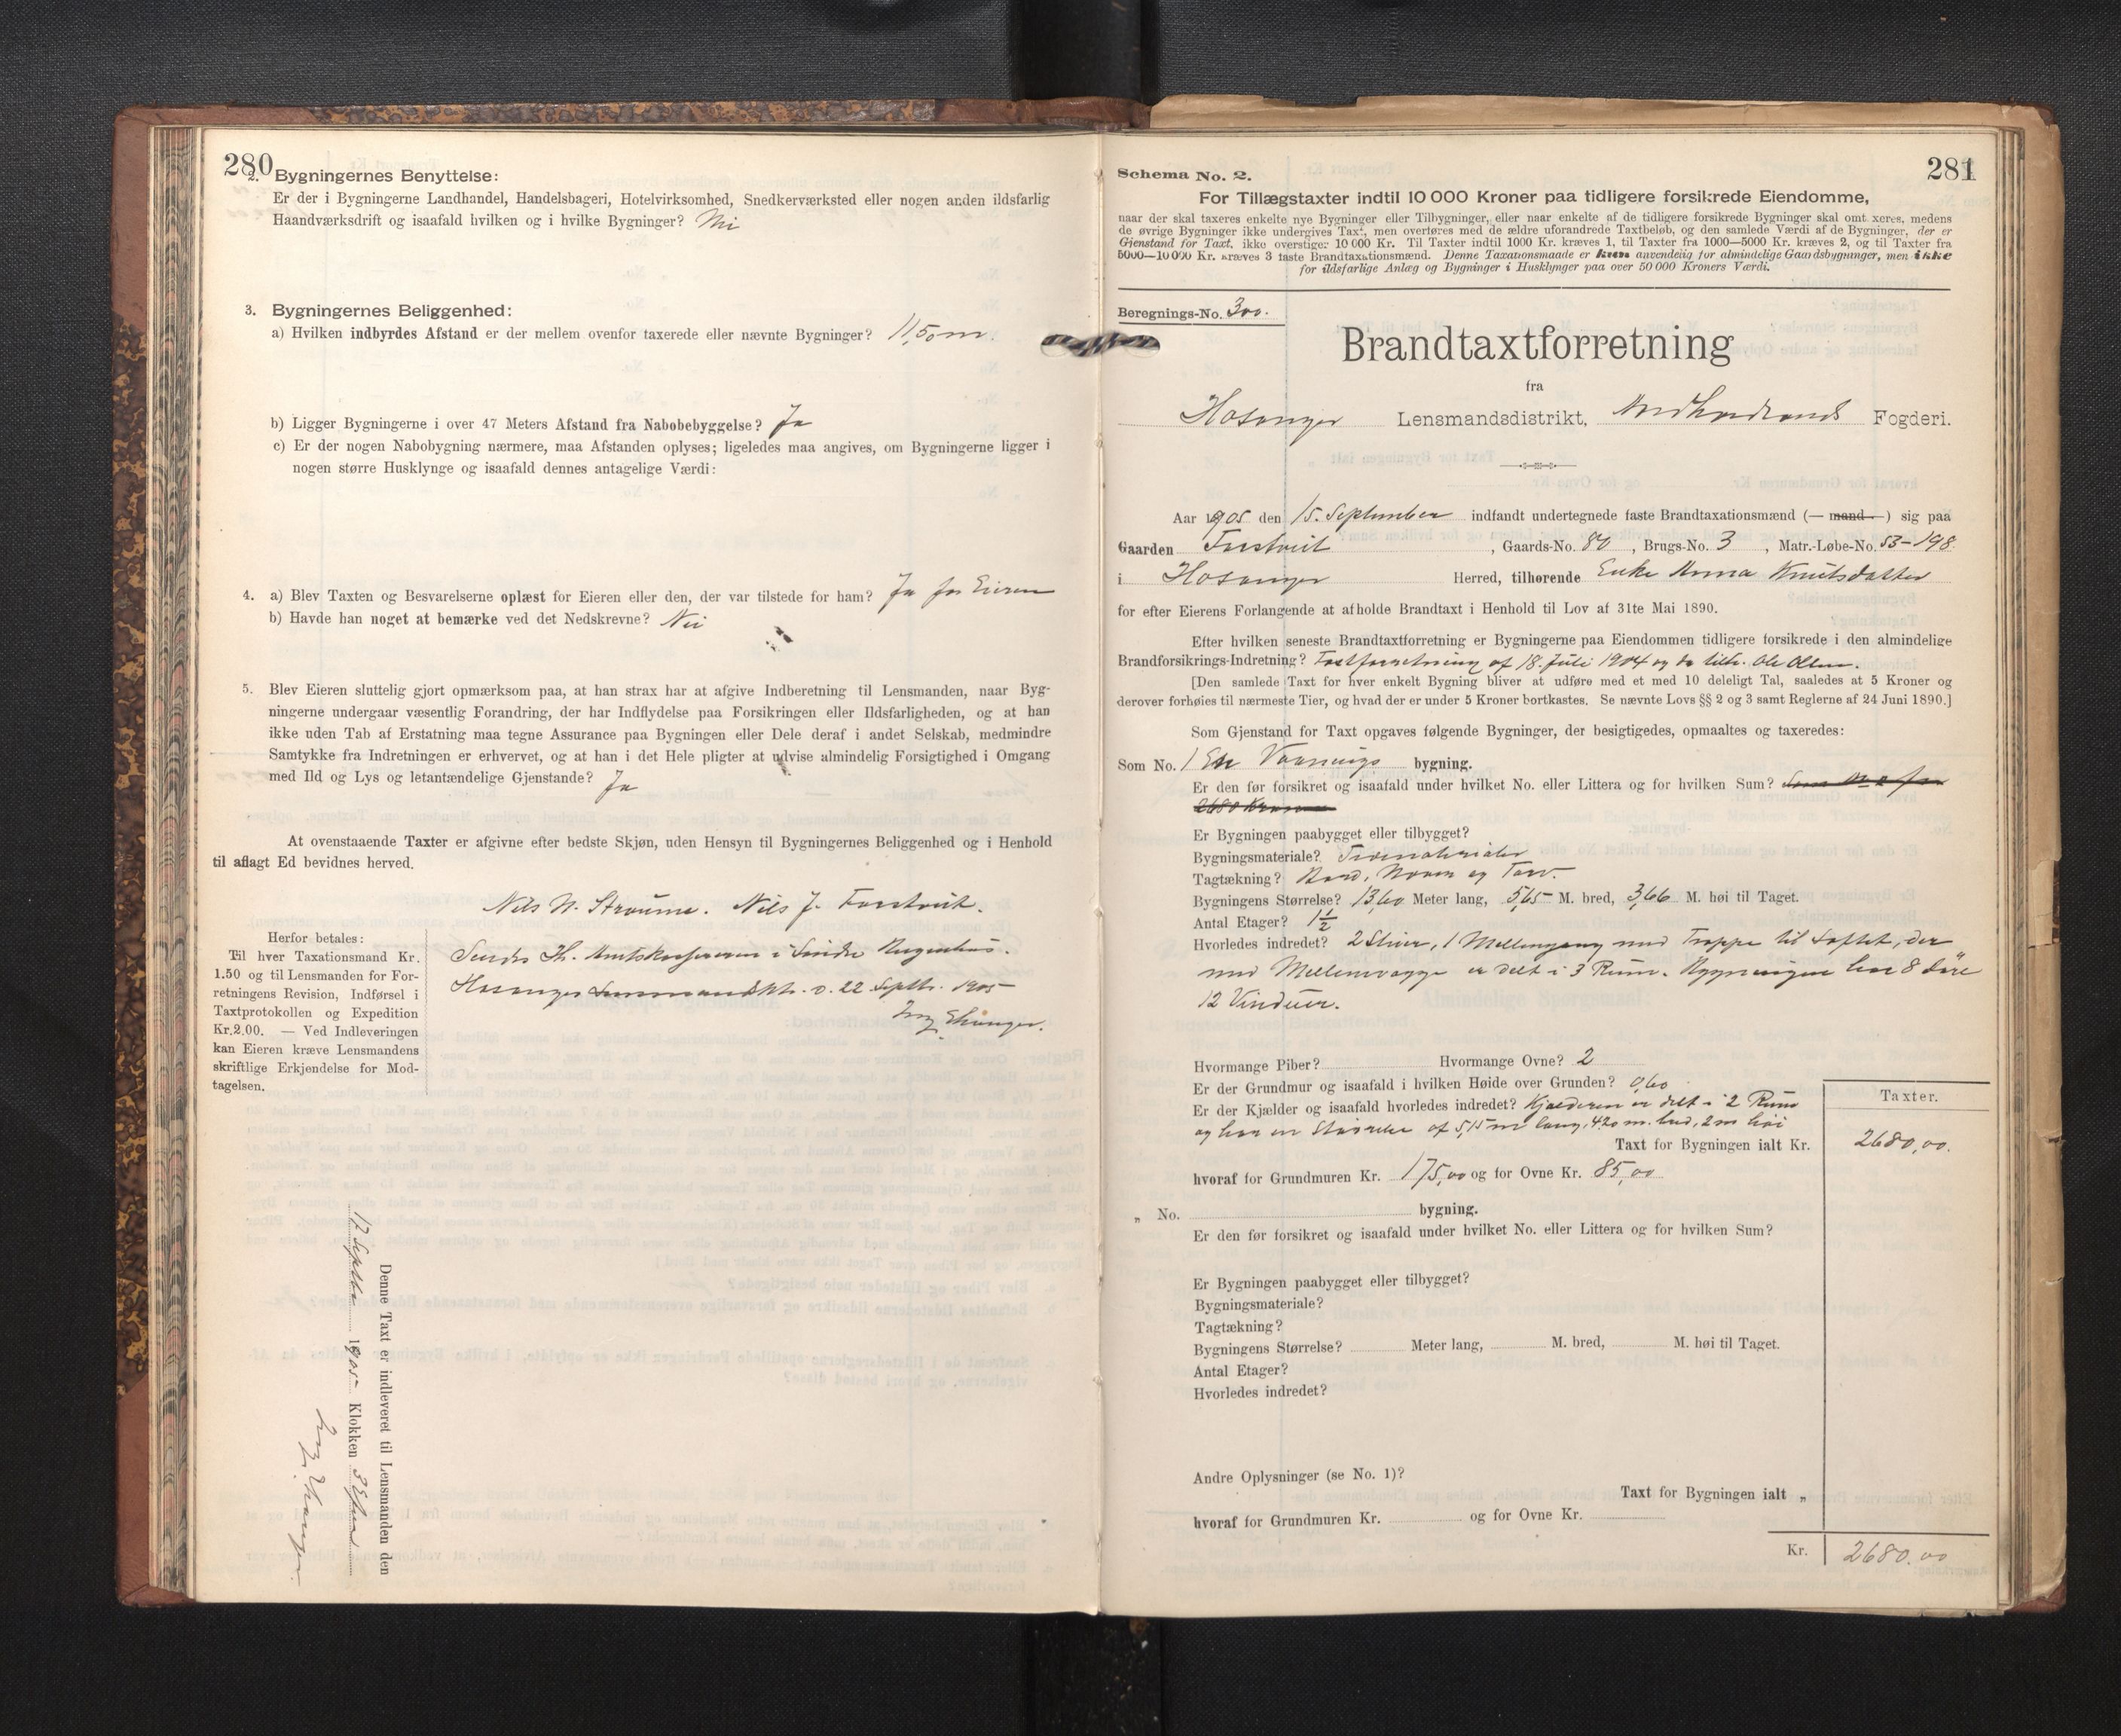 280
2. Bygningernes Benyttelse:
Er der i Bygningerne Landhandel, Handelsbageri, Hotelvirksomhed, Snedkerværksted eller nogen anden ildsfarlig
Haandværksdrift og isaafald hvilken og i hvilke Bygninger? Nei
3. Bygningernes Beliggenhed:
a) Hvilken indbyrdes Afstand er der mellem ovenfor taxerede eller nævnte Bygninger? 11,50 m.
b) Ligger Bygningerne i over 47 Meters Afstand fra Nabobebyggelse? Ja
c) Er der nogen Nabobygning nærmere, maa Afstanden oplyses; ligeledes maa angives, om Bygningerne ligger i
nogen større Husklynge og isaafald dennes antagelige Værdi:
4. a) Blev Taxten og Besvarelserne oplæst for Eieren eller den, der var tilstede for ham? Ja for Eieren
b) Havde han noget at bemærke ved det Nedskrevne? Nei
5. Blev Eieren sluttelig gjort opmærksom paa, at han strax har at afgive Indberetning til Lensmanden, naar Byg-
ningerne undergaar væsentlig Forandring, der har Indflydelse paa Forsikringen eller Ildsfarligheden, og at han
ikke uden Tab af Erstatning maa tegne Assurance paa Bygningen eller Dele deraf i andet Selskab, medmindre
Samtykke fra Indretningen er erhvervet, og at han i det Hele pligter at udvise almindelig Forsigtighed i Omgang
med Ild og Lys og letantændelige Gjenstande? Ja
At ovenstaaende Taxter er afgivne efter bedste Skjøn, uden Hensyn til Bygningernes Beliggenhed og i Henhold
til aflagt Ed bevidnes herved.
Nils N. Straume. Nils J. Fosstveit.
Herfor betales:
Til hver Taxationsmand Kr.
1.50 og til Lensmanden for For-
retningens Revision, Indførsel i
Taxtprotokollen og Expedition
Kr.2.00. — Ved Indleveringen
kan Eieren kræve Lensmandens
skriftlige Erkjendelse for Mod-
tagelsen.
Sendes Hr. i Søndre Bergenhus.
Hosanger Lensmandsktr. d. 22 Septbr. 1905
Denne Taxt er indleveret til Lensmanden den
17 Septbr 1905 Klokken 3
281
Schema No. 2.
For Tillægstaxter indtil 10 000 Kroner paa tidligere forsikrede Eiendomme,
naar der skal taxeres enkelte nye Bygninger eller Tilbygninger, eller naar enkelte af de tidligere forsikrede Bygninger skal omtaxeres, medens
de øvrige Bygninger ikke undergives Taxt, men overføres med de ældre uforandrede Taxtbeløb, og den samlede Værdi af de Bygninger, der er
Gjenstand for Taxt, ikke overstiger 10 000 Kr. Til Taxter indtil 1000 Kr. kræves 1, til Taxter fra 1000—5000 Kr. kræves 2, og til Taxter fra
5000—10 000 Kr. kræves 3 faste Brandtaxationsmænd. Denne Taxationsmaade er kun anvendelig for almindelige Gaardsbygninger, men ikke
for ildsfarlige Anlæg og Bygninger i Husklynger paa over 50 000 Kroners Værdi.
Beregnings-No. 300.
Brandtaxtforretning
fra
Hosanger Lensmandsdistrikt, Nordhordlands Fogderi.
Aar 1905 den 15. September indfandt undertegnede faste Brandtaxationsmænd (— mand —) sig paa
Gaarden Fosstveit, Gaards-No. 80, Brugs-No. 3, Matr.-Løbe-No. 53-198
i Hosanger Herred, tilhørende Enke Anna Knutsdatter
for efter Eierens Forlangende at afholde Brandtaxt i Henhold til Lov af 31te Mai 1890.
Efter hvilken seneste Brandtaxtforretning er Bygningerne paa Eiendommen tidligere forsikrede i den almindelige
Brandforsikrings-Indretning? Taxtforretning af 18. Juli 1904 og da tilh. Ole Olsen.
[Den samlede Taxt for hver enkelt Bygning bliver at udføre med et med 10 deleligt Tal, saaledes at 5 Kroner og
derover forhøies til nærmeste Tier, og hvad der er under 5 Kroner bortkastes. Se nævnte Lovs §§ 2 og 3 samt Reglerne af 24 Juni 1890.]
Som Gjenstand for Taxt opgaves følgende Bygninger, der besigtigedes, opmaaltes og taxeredes:
Som No. 1 En Vaanings bygning.
Er den før forsikret og isaafald under hvilket No. eller Littera og for hvilken Sum? Som No 2 for
2680 Kroner
Er Bygningen paabygget eller tilbygget?
Bygningsmateriale? Træmaterialer
Tagtækning? Bord, Næver og Torv.
Bygningens Størrelse? 13,60 Meter lang, 5,65 M. bred, 3,66 M. høi til Taget.
Antal Etager? 1½
Hvorledes indredet? 2 Stuer, 1 Mellemgang med Trappe til Loftet, der
med Mellemvægge er delt i 3 Rum. Bygningen har 8 Døre
12 Vinduer.
Hvormange Piber? Hvormange Ovne? 2
Er der Grundmur og isaafald i hvilken Høide over Grunden? 0,60
Er der Kjælder og isaafald hvorledes indredet? Kjælderen er delt i 2 Rum
og har en Størrelse af 5,15 m lang, 4,20 m. bred, 2 m høi
Taxter.
Taxt for Bygningen ialt Kr. 2680,00.
hvoraf for Grundmuren Kr. 175,00 og for Ovne Kr. 85,00
„ No. bygning.
Er den før forsikret og isaafald under hvilket No. eller Littera og for hvilken Sum?
Er Bygningen paabygget eller tilbygget?
Bygningsmateriale?
Tagtækning?
Bygningens Størrelse? Meter lang, M. bred, M. høi til Taget.
Antal Etager?
Hvorledes indredet?
Andre Oplysninger (se No. 1)?
Taxt for Bygningen ialt „
hvoraf for Grundmuren Kr. og for Ovne Kr.
Kr. 2680.00